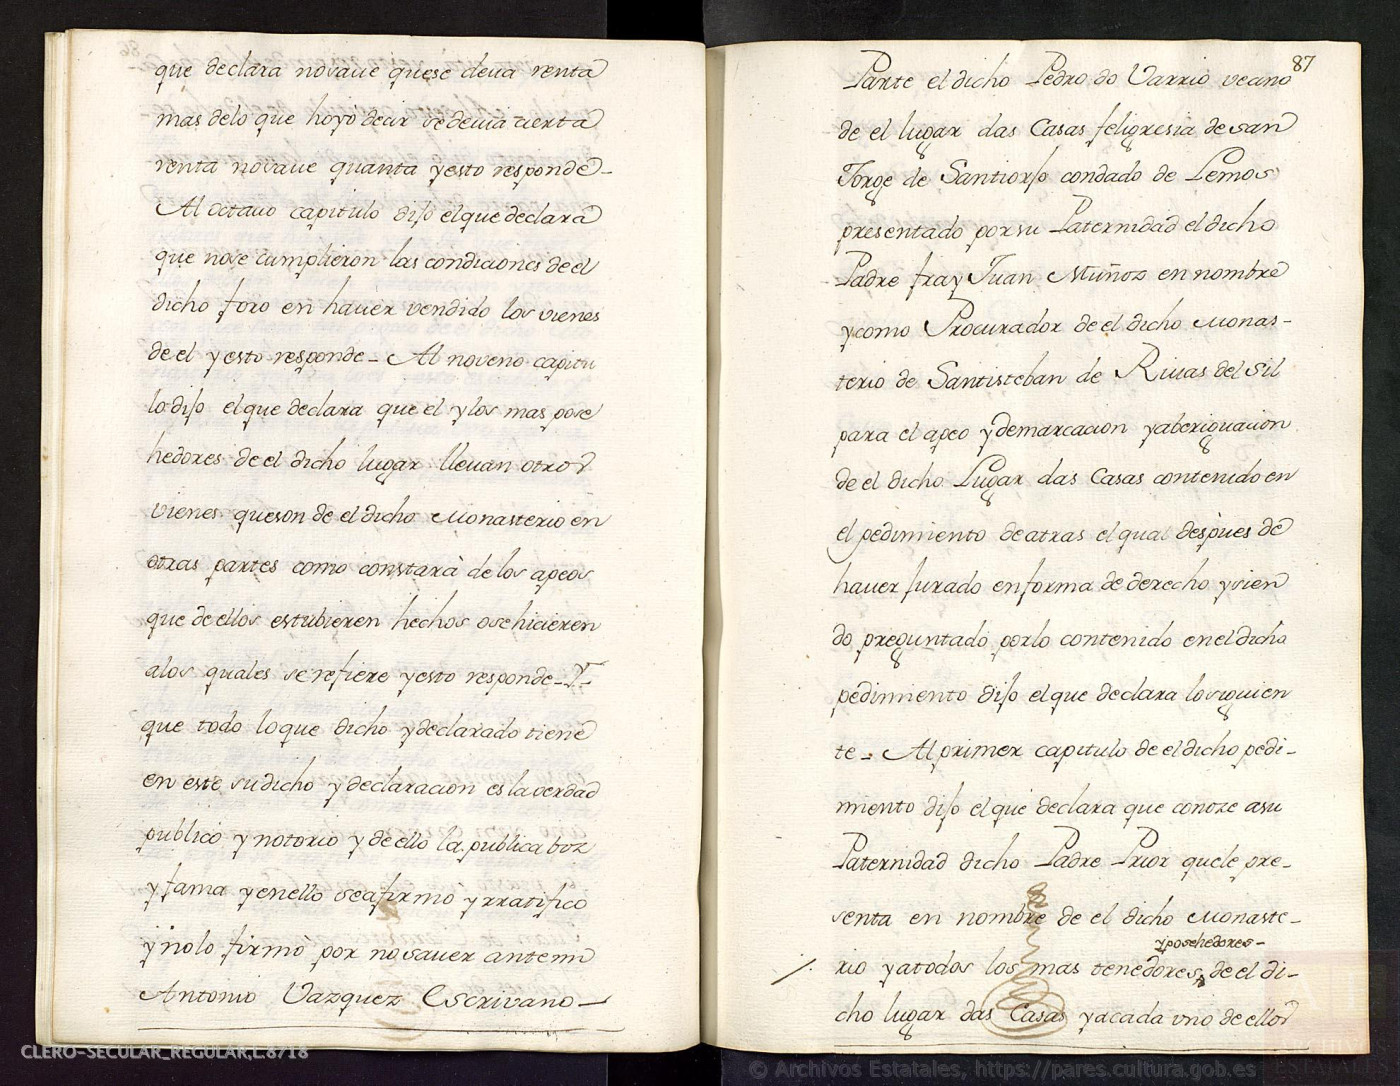 que declara no vaue quese deua renta
mas delo que hoyo decir se deuia cierta
renta no vaue quanta y esto responde-
Al octauo capitulo dijo elque declara
que nose cumplieron las condiciones de el
dicho foro en hauer vendido los vienes
de el y esto responde- Al noveno capitu
lo dijo elque declara que el y los mas pose
hedores de el dicho lugar lleuan otros
vienes queson de el dicho Monasterio en
otras partes como constarà de los apeos
que de ellos estubieren hechos o se hicieren
a los quales se refiere y esto responde-Y-
que todo loque dicho y declarado tiene
en este su dicho y declaracion es la verdad
publico y notorio y de ello la publica boz
y fama y enello seafirmo y rratifico
y nolo firmò por no sauer antemi
Antonio Vazquez Escrivano-
87
Parte el dicho Pedro do Varrio vecino
de el lugar das Casas feligresia de san
Jorge de Santiorjo condado de Lemos
presentado por su Paternidad el dicho
Padre fray Juan Muñoz en nombre
y como Procurador de el dicho Monas-
terio de Santisteban de Riuas del Sil
para el apeo y demarcacion y aberiguacion
de el dicho Lugar das Casas contenido en
el pedimiento de atras el qual despues de
hauer Jurado en forma de derecho y sien
do preguntado por lo contenido en el dicho
pedimiento dijo el que declara lo siguien
te- Al primer capitulo de el dicho pedi-
miento dijo el que declara que conoze asu
Paternidad dicho Padre Prior quele pre-
senta en nombre de el dicho Monaste-
y posehedores-
rio y atodos los mas tenedores, de el di-
cho lugar das Casas y acada uno de ellos
CLERO-SECULAR_REGULAR,L.8718
© Archivos Estatales, https://pares.cultura.gob.es
ARCHIVOS
ESTATALES